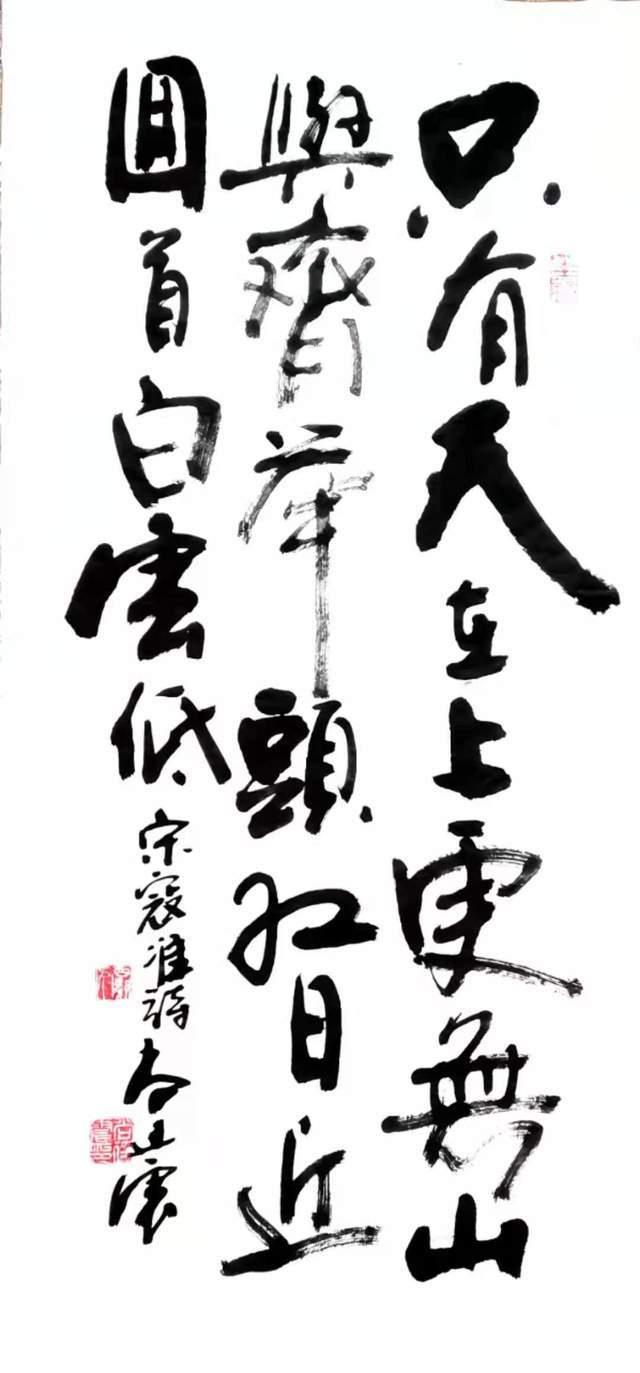 只有天在上更無山
與齊舉頭紅日近
回首白雲低宋寇準詩